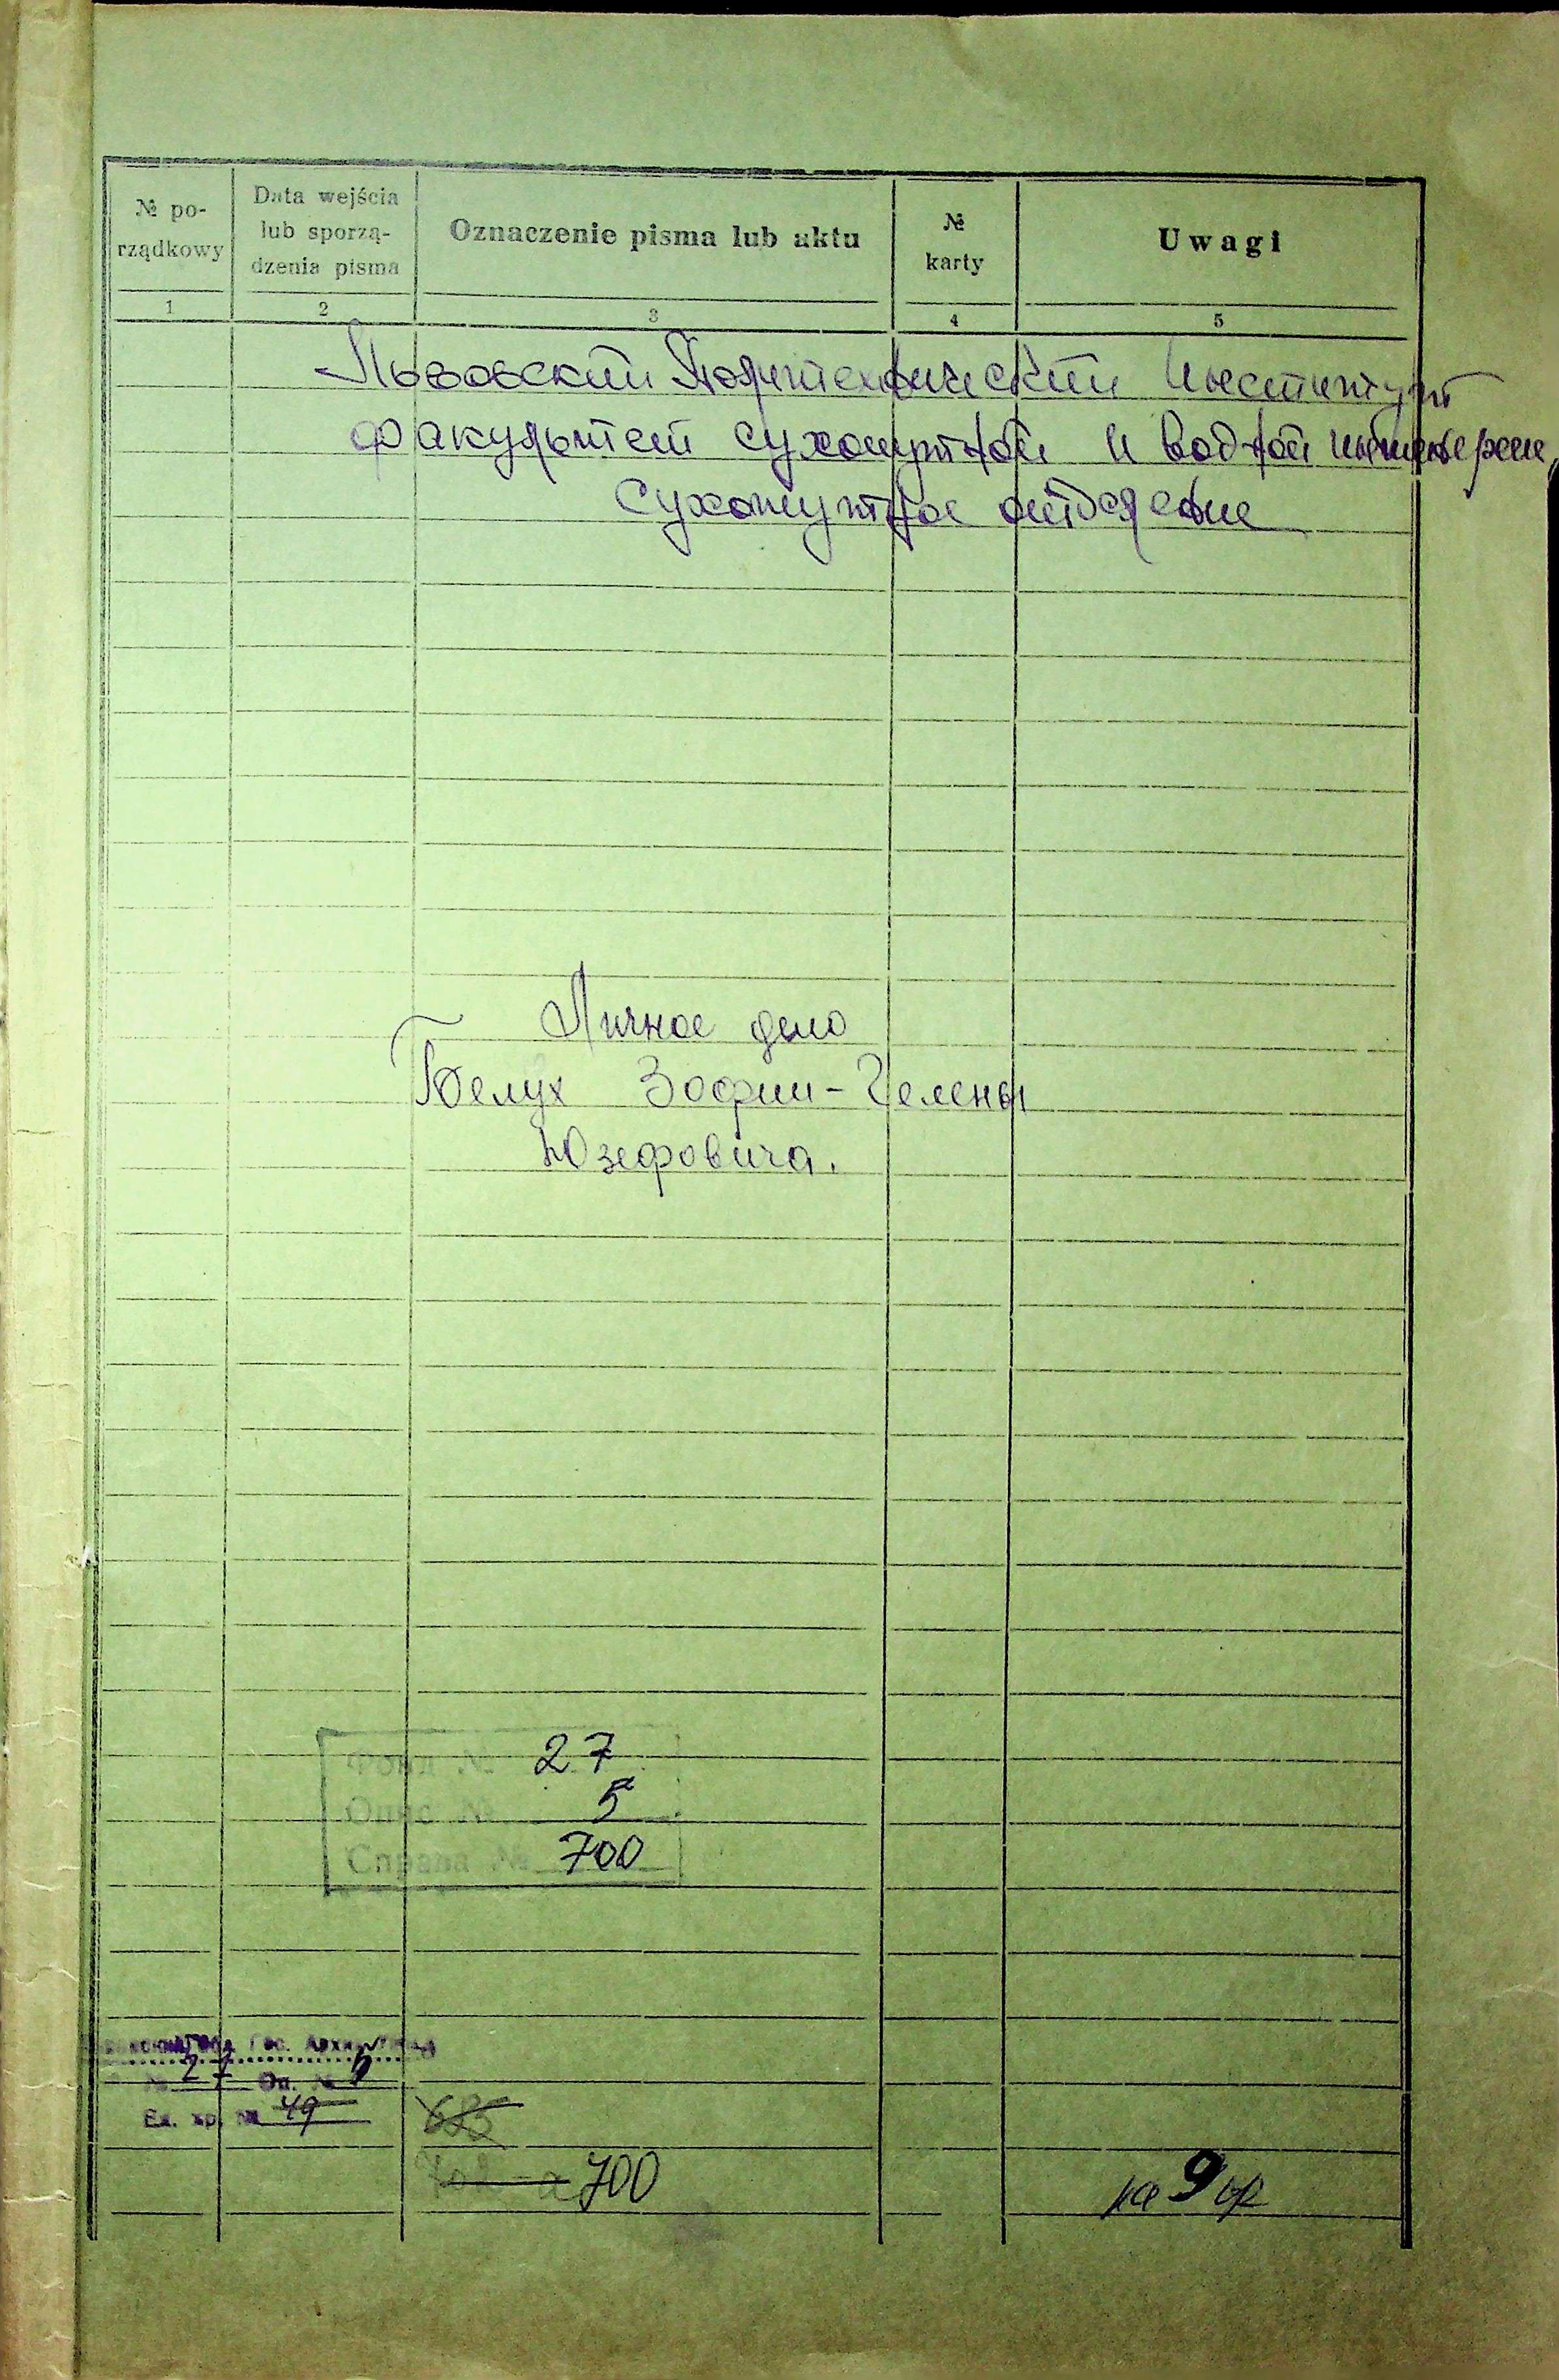 № po-
rządkowy
Data wejścia
lub sporzą-
dzenia pisma
Oznaczenie pisma lub aktu
№
karty
Uwagi
1 2 3 4 5
Львовский Политехнический Институт
факультет сухопутной и водной
Сухопутное отделение
Личное дело
Белух Зофии-Гелены
Юзефовича.
Фонд № 27
Опис № 5
Справа № 700
Гос. Архив
№ 27 Оп. № 5
Ед. хр. № 49
685
700
на 9